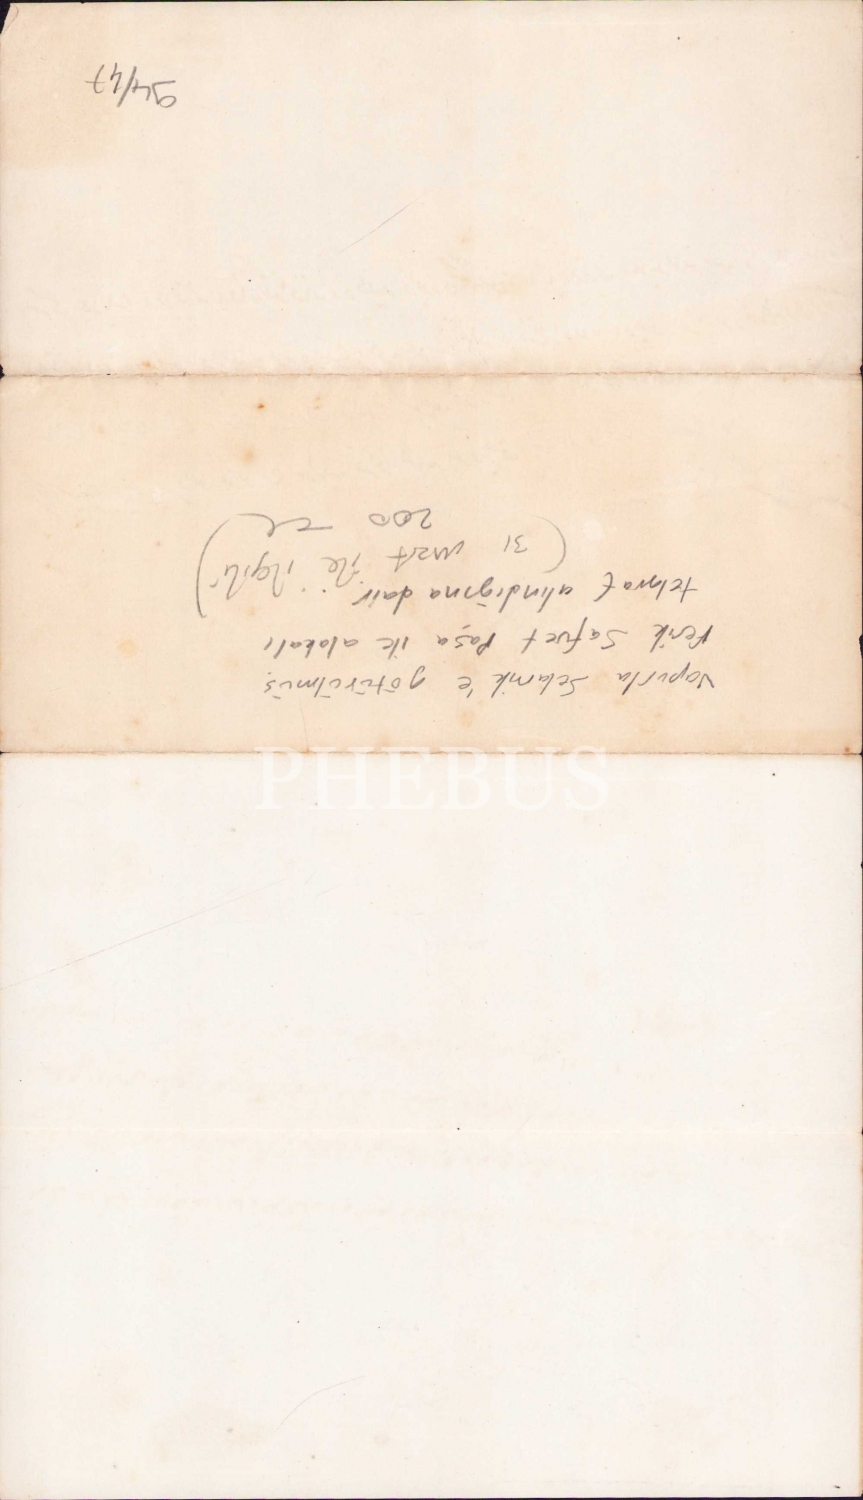 Vapurla Selanik'e götürülmüş
Ferik Safvet Paşa ile alakalı
telgraf alındığına dair
(31 mart ile ilgili)
200 TL
94/47
PHEBUS